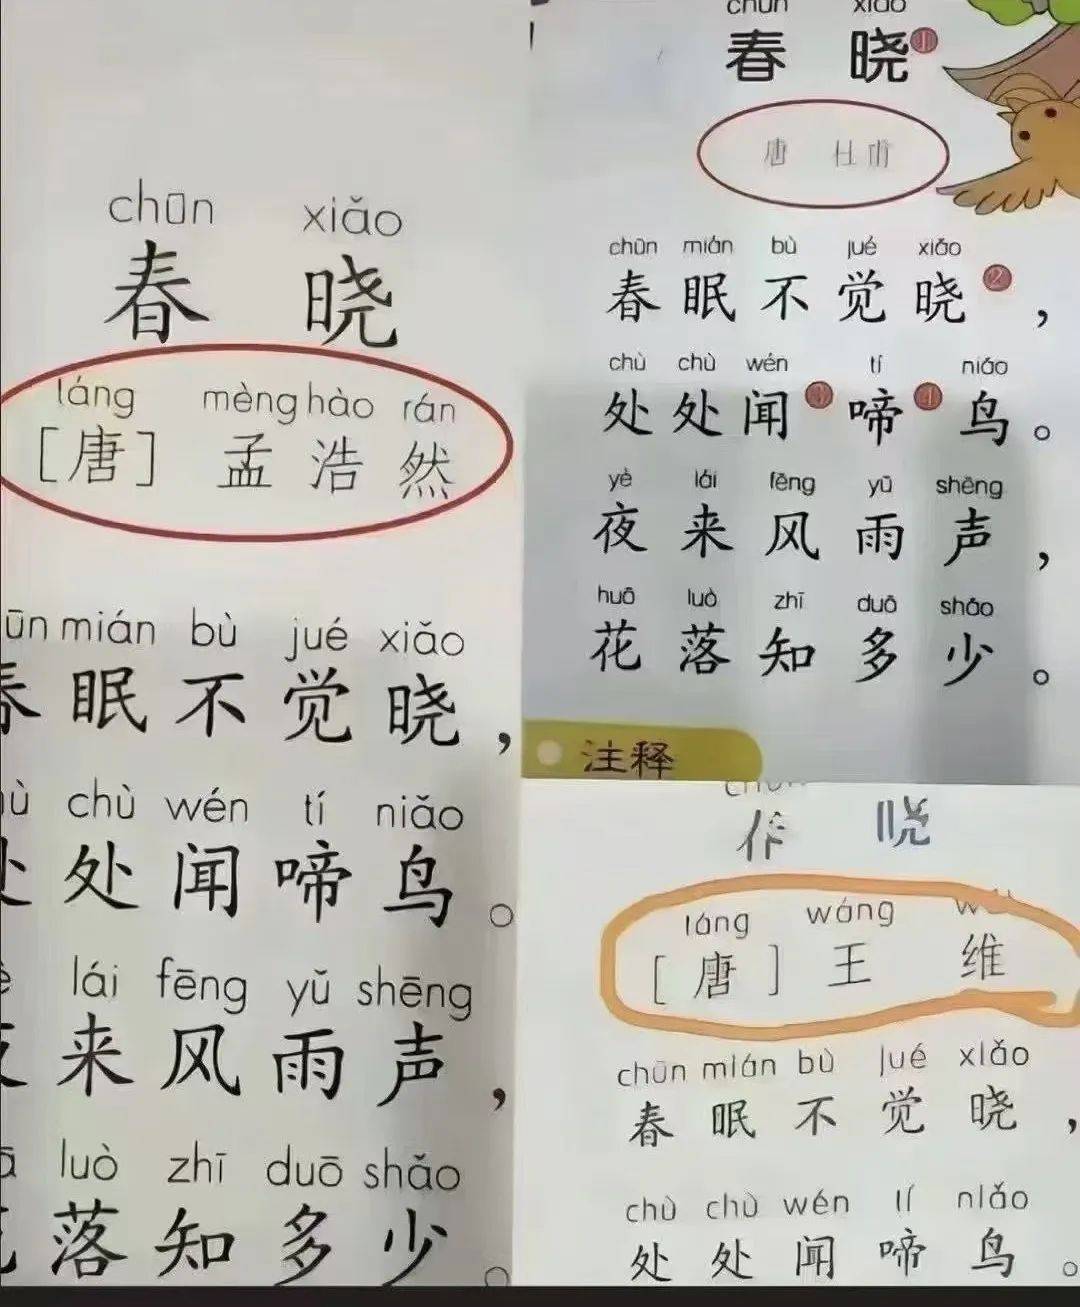 chūn xiǎo
春 晓
táng mèng hào rán
[唐] 孟 浩 然
ūn mián bù jué xiǎo
春 眠 不 觉 晓，
ù chù wén tí niǎo
处 处 闻 啼 鸟。
è lái fēng yǔ shēng
夜 来 风 雨 声，
ā luò zhī duō shǎo
花 落 知 多 少。
chūn xiǎo
春 晓①
唐 杜甫
chūn mián bù jué xiǎo
春 眠 不 觉 晓②，
chù chù wén tí niǎo
处 处 闻③ 啼④ 鸟。
yè lái fēng yǔ shēng
夜 来 风 雨 声，
huā luò zhī duō shǎo
花 落 知 多 少。
注释
晓
táng wáng
[唐] 王 维
chūn mián bù jué xiǎo
春 眠 不 觉 晓，
chù chù wén tí niǎo
处 处 闻 啼 鸟。